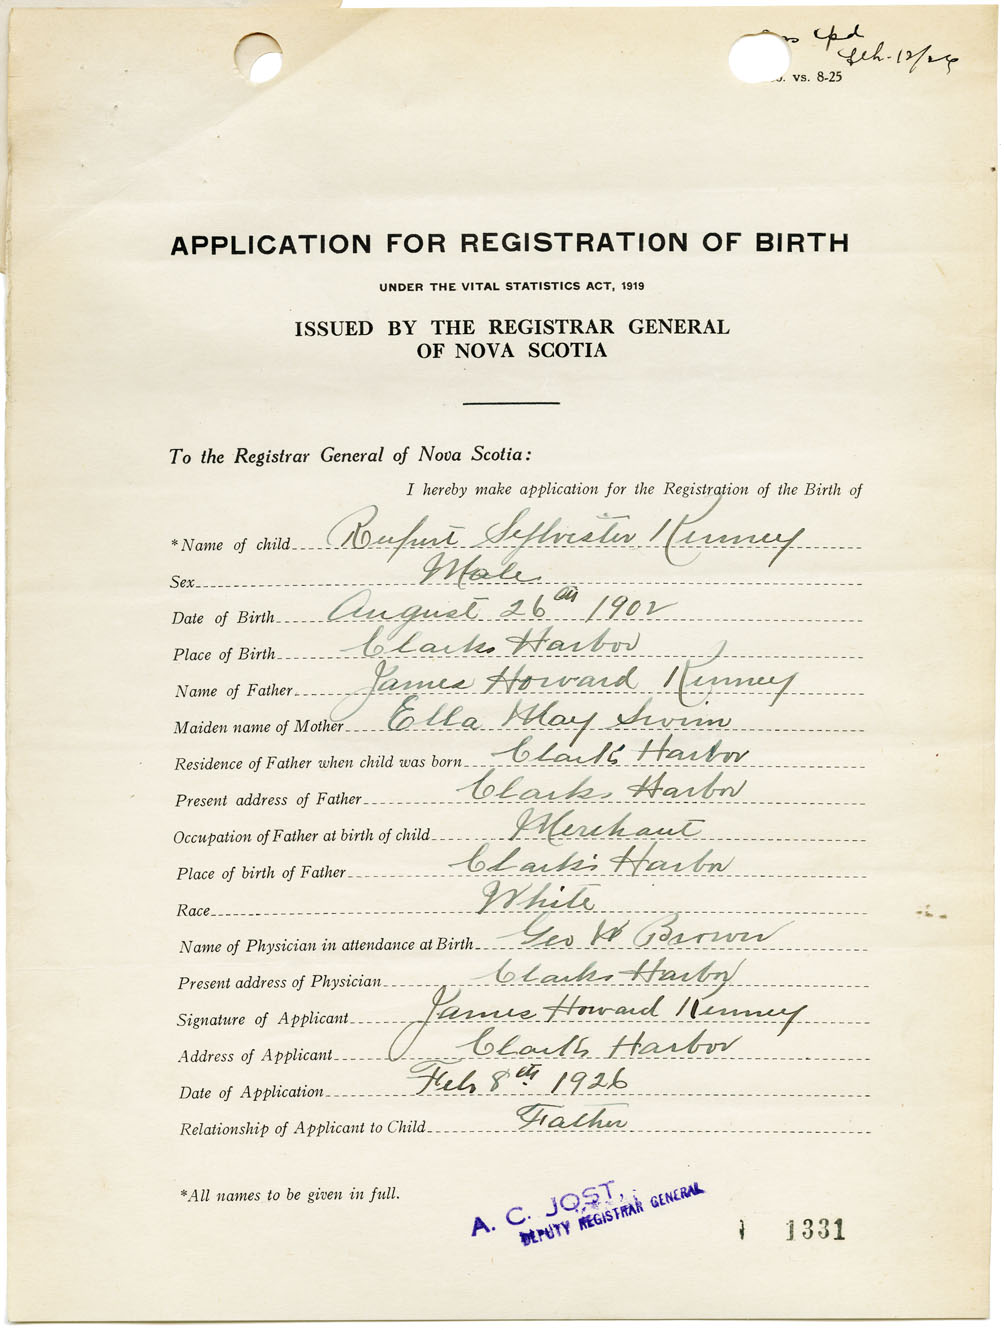 cpd
Feb. 12/26
vs. 8-25
APPLICATION FOR REGISTRATION OF BIRTH
UNDER THE VITAL STATISTICS ACT, 1919
ISSUED BY THE REGISTRAR GENERAL
OF NOVA SCOTIA
To the Registrar General of Nova Scotia:
I hereby make application for the Registration of the Birth of
*Name of child Rupert Sylvester Kenney
Sex Male
Date of Birth August 26th 1902
Place of Birth Clarks Harbor
Name of Father James Howard Kenney
Maiden name of Mother Ella May Swim
Residence of Father when child was born Clark's Harbor
Present address of Father Clarks Harbor
Occupation of Father at birth of child Merchant
Place of birth of Father Clark's Harbor
Race White
Name of Physician in attendance at Birth Geo W Brown
Present address of Physician Clarks Harbor
Signature of Applicant James Howard Kenney
Address of Applicant Clark's Harbor
Date of Application Feb 8th 1926
Relationship of Applicant to Child Father
*All names to be given in full.
A. C. JOST,
DEPUTY REGISTRAR GENERAL
1331